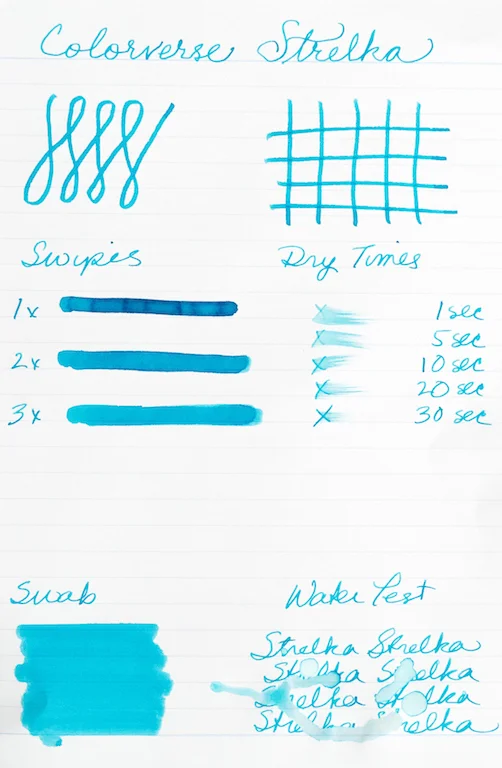 Colorverse Strelka
Swipes
Dry Times
1x
2x
3x
x 1 sec
x 5 sec
x 10 sec
x 20 sec
x 30 sec
Swab
Water Test
Strelka Strelka
Strelka Strelka
Strelka Strelka
Strelka Strelka